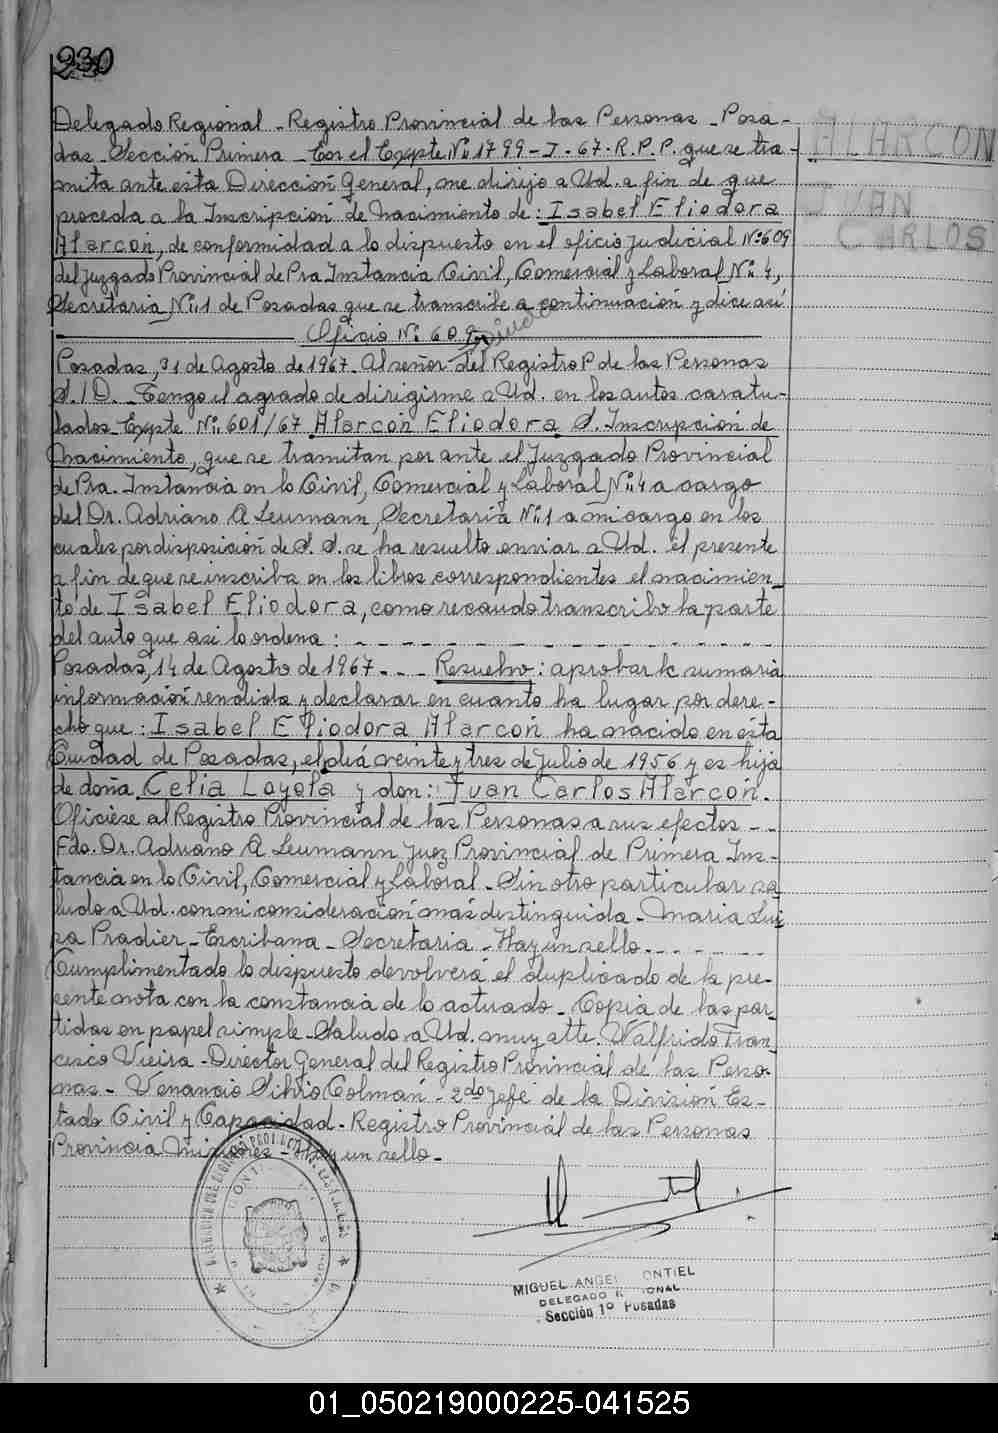 230
Delegado Regional - Registro Provincial de las Personas - Posa-
das - Sección Primera - En el Expte Nº 1799 - J - 67 - R. P. P. que se tra-
mita ante esta Dirección General, me dirijo a Ud. a fin de que
proceda a la Inscripción de Nacimiento de: Isabel Eliodora
Alarcón, de conformidad a lo dispuesto en el oficio judicial Nº 609
del Juzgado Provincial de Pra Instancia Civil, Comercial y Laboral Nº 4,
Secretaria Nº 1 de Posadas que se transcribe a continuación y dice así
Oficio Nº 609
Posadas, 31 de Agosto de 1967 - Al señor del Registro P de las Personas
S. / D. - Tengo el agrado de dirigirme a Ud. en los autos caratu-
lados - Expte Nº 601/67 Alarcón Eliodora S. Inscripción de
Nacimiento, que se tramitan por ante el Juzgado Provincial
de Pra. Instancia en lo Civil, Comercial y Laboral Nº 4 a cargo
del Dr. Adriano A Leumann, Secretaria Nº 1 a mi cargo en los
cuales por disposición de S. S. se ha resuelto enviar a Ud. el presente
a fin de que se inscriba en los libros correspondientes el nacimien_
to de Isabel Eliodora, como recaudo transcribo la parte
del auto que así lo ordena: - - - - - - - - - - - -
Posadas, 14 de Agosto de 1967 - - - Resuelvo: aprobar la sumaria
información rendida y declarar en cuanto ha lugar por dere-
cho que: Isabel Eliodora Alarcón ha nacido en ésta
Ciudad de Posadas, el día veinte y tres de Julio de 1956 y es hija
de doña Celia Loyola y don: Juan Carlos Alarcón.
Ofíciese al Registro Provincial de las Personas a sus efectos - -
Fdo. Dr. Adriano A Leumann Juez Provincial de Primera Ins-
tancia en lo Civil, Comercial y Laboral - Sin otro particular sa
ludo a Ud. con mi consideración más destinguida - Maria Lui
sa Pradier - Escribana - Secretaria - Hay un sello - - - - -
Cumplimentado lo dispuesto devolverá el duplicado de la pre-
sente nota con la constancia de lo actuado - Copia de las par_
tidas en papel simple - Saludo a Ud. muy atte. Walfrido Fran-
cisco Vieira - Director General del Registro Provincial de las Perso-
nas - Venancio Silvio Colmán - 2do Jefe de la División Es-
tado Civil y Capacidad - Registro Provincial de las Personas
Provincia Misiones - Hay un sello -
ALARCON
JUAN
CARLOS
MIGUEL ANGEL ONTIEL
DELEGADO R IONAL
Sección 1º Posadas
01_050219000225-041525